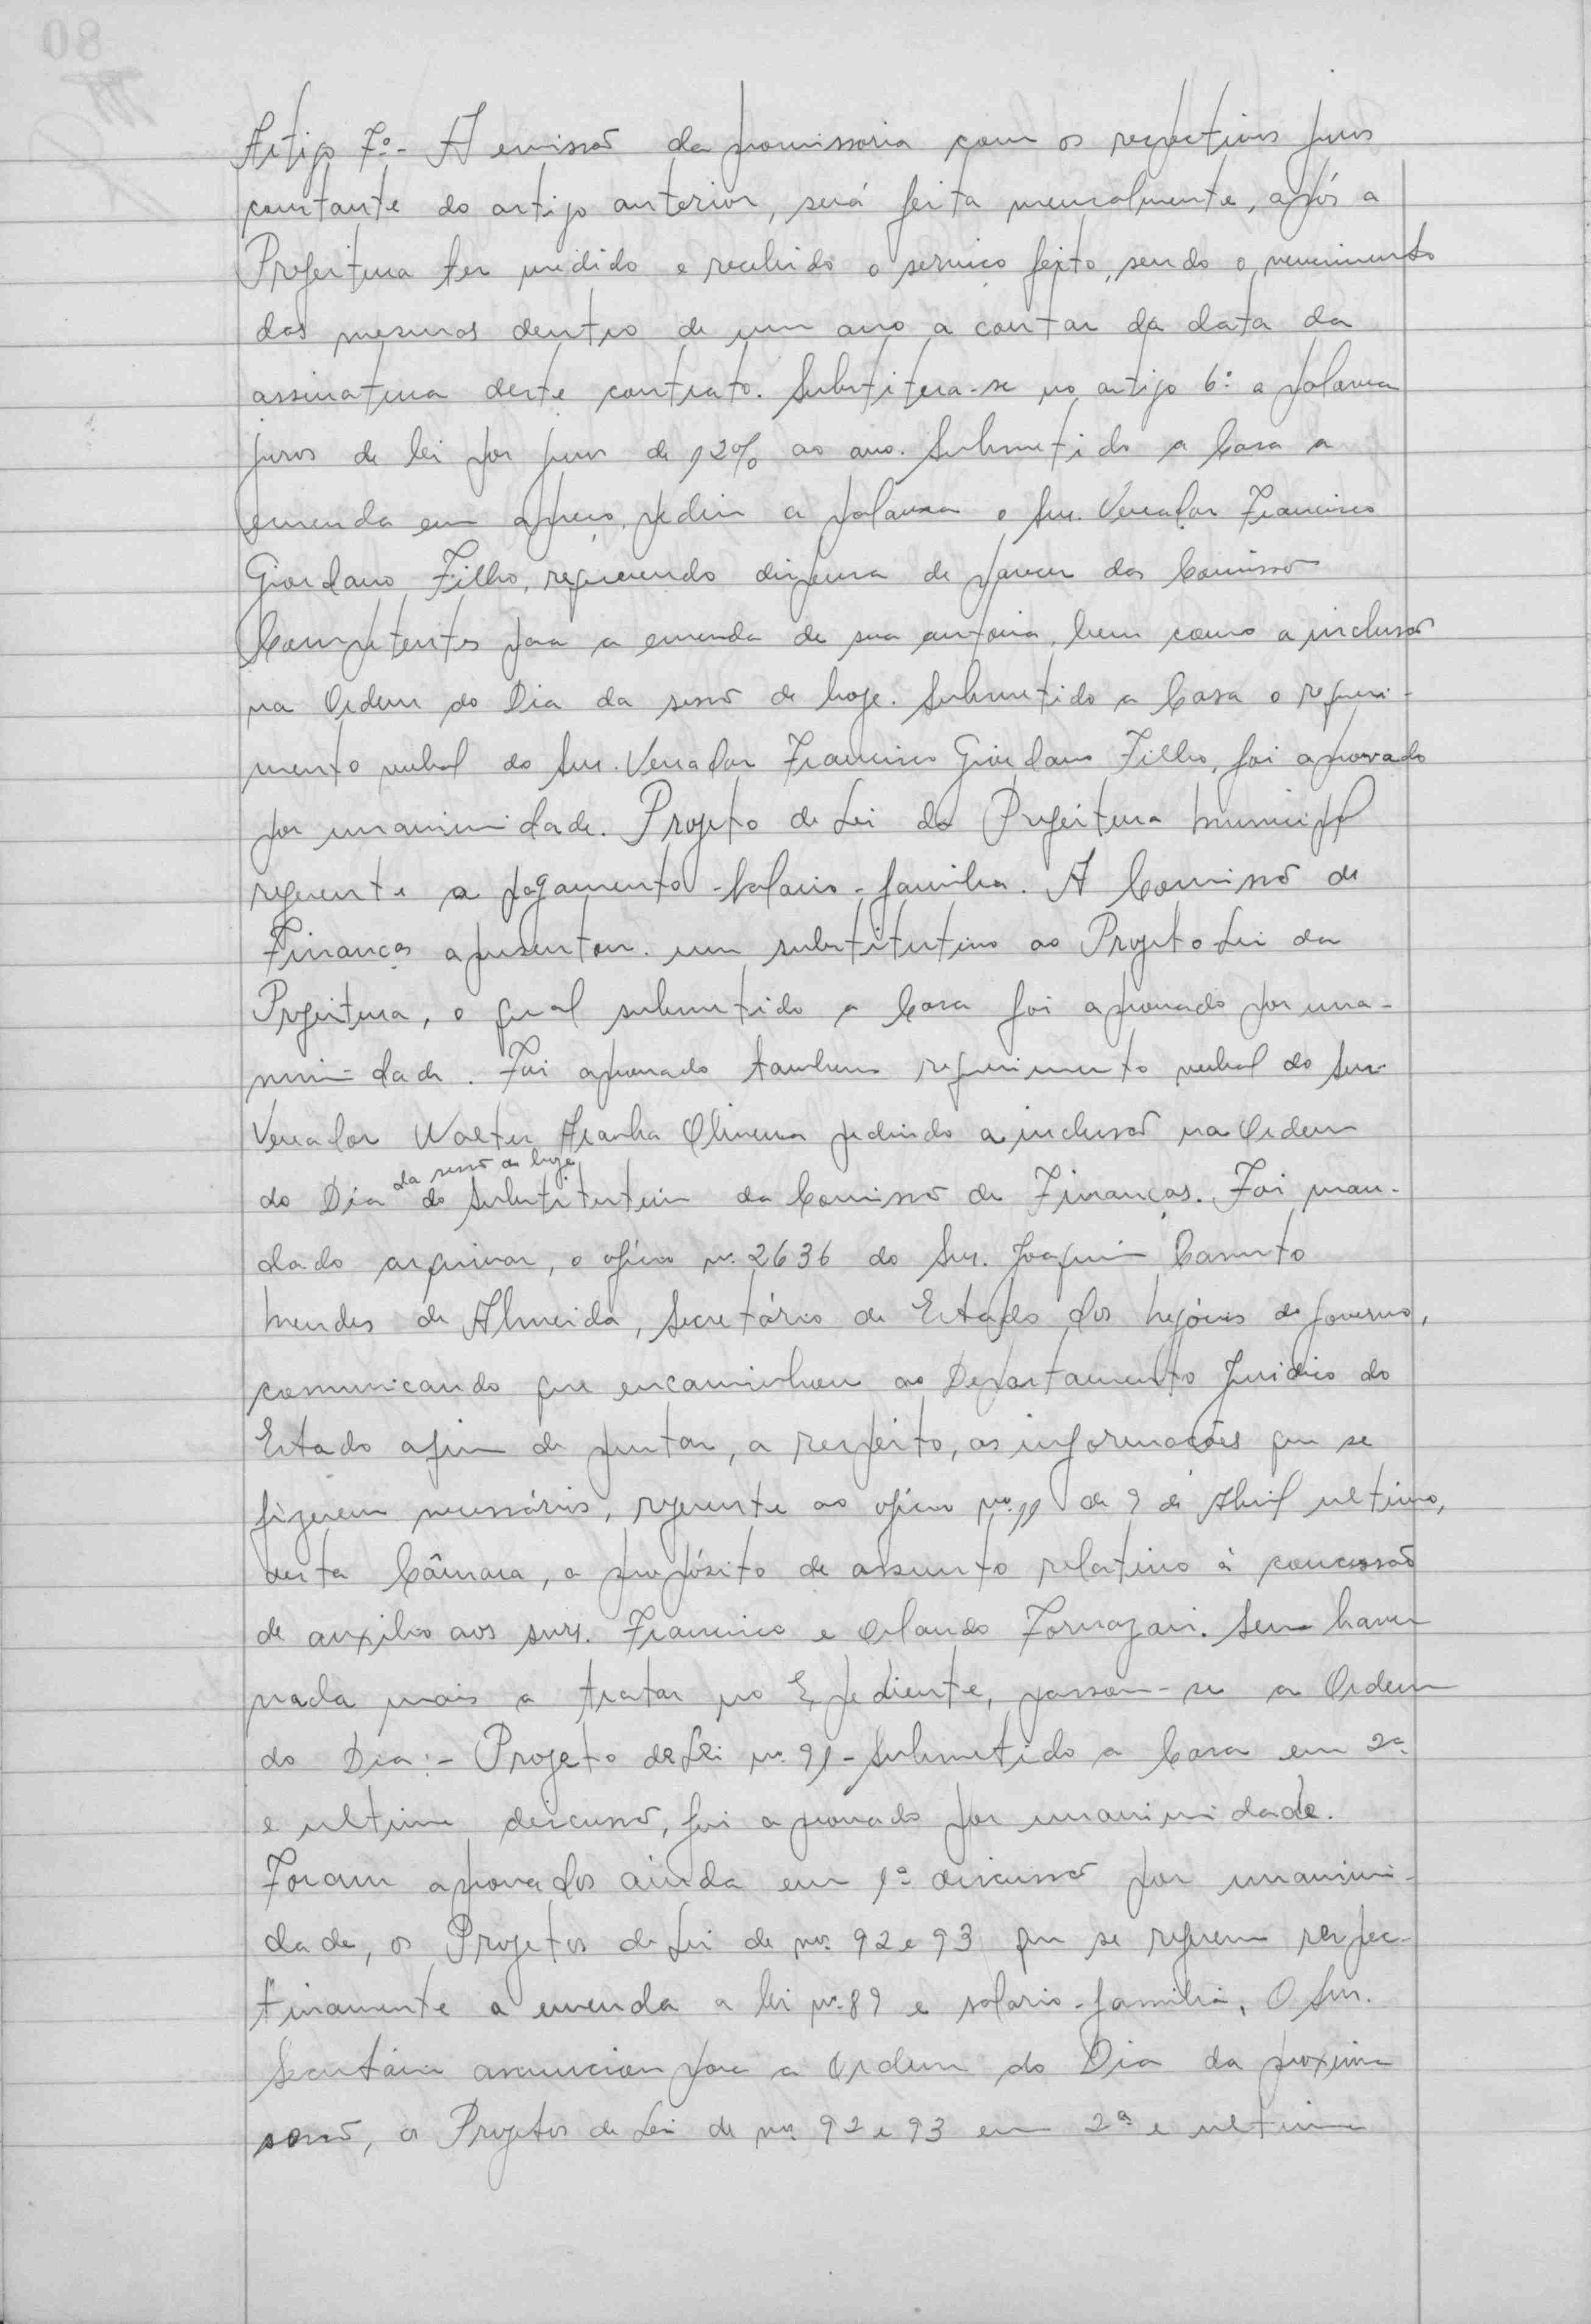 Artigo 7º - A emissão da promissoria com os respectivos juros
constante do artigo anterior, será feita mensalmente, após a
Prefeitura ter medido e recebido o serviço feito, sendo o vencimento
das mesmas dentro de um ano a contar da data da
assinatura deste contrato. Substitua-se no artigo 6º a palavra
juros de lei por juros de 12% ao ano. Submetido a Casa a
emenda em apreço, pediu a palavra o Snr. Vereador Francisco
Giordano Filho, requerendo dispensa de parecer das Comissão
Competentes para a emenda de sua autoria, bem como a inclusão
na Ordem do Dia da sessão de hoje. Submetido a Casa o requeri-
mento verbal do Snr. Vereador Francisco Giordano Filho, foi aprovado
por unanimidade. Projeto de Lei da Prefeitura Municipal
referente a pagamento - salario-familia. A Comissão de
Finanças apresentou um substitutivo ao Projeto Lei da
Prefeitura, o qual submetido a Casa foi aprovado por una-
nimi-dade. Foi aprovado tambem requerimento verbal do Snr.
Vereador Walter Aranha Oliveira pedindo a inclusão na Ordem
do Dia da sessão de hoje do Substitutivo da Comissão de Finanças. Foi man-
dado arquivar, o ofício nº 2636 do Snr. Joaquim Canuto
Mendes de Almeida, Secretário de Estado dos Negócios do Governo,
comunicando que encaminhou ao Departamento Juridico do
Estado afim de juntar, a respeito, as informações que se
fizerem necessários, referente ao ofício nº 99 de 9 de Abril ultimo,
desta Câmara, a propósito de assunto relativo à concessão
de auxilio aos snrs. Francisco e Orlando Fornazari. Sem haver
nada mais a tratar no Expediente, passou-se a Ordem
do Dia:- Projeto de Lei nº 91 - Submetido a Casa em 2ª
e ultima discussão, foi aprovado por unanimidade.
Foram aprovados ainda em 1ª discussão por unanimi-
dade, os Projetos de Lei de nos. 92 e 93 que se referem respec-
tivamente a emenda a lei nº 89 e salario-familia. O Snr.
Secretário anunciou para a Ordem do Dia da proxima
sessão, os Projetos de Lei de nos. 92 e 93 em 2ª e ultima